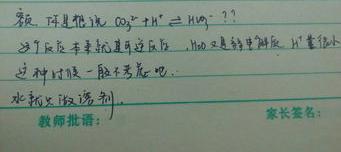 额 你是想说 CO₃²⁻ + H⁺ ⇌ HCO₃⁻ ??
这个反应本来就是可逆反应，H₂O又是弱电解质 H⁺量很小
这种时候一般不考虑吧..
水就只做溶剂.
教师批语： 家长签名：